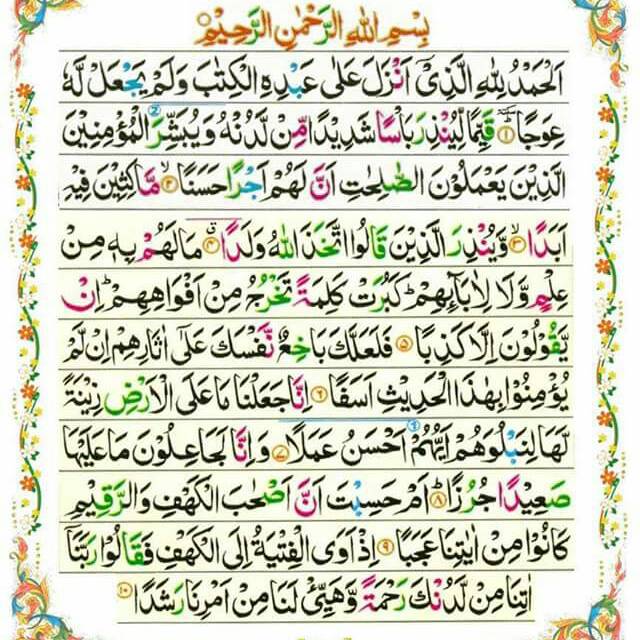 بِسْمِ اللهِ الرَّحْمٰنِ الرَّحِيْمِ
اَلْحَمْدُ لِلّٰهِ الَّذِیْۤ اَنْزَلَ عَلٰى عَبْدِهِ الْكِتٰبَ وَلَمْ یَجْعَلْ لَّهٗ
عِوَجًا ؕ۱ قَیِّمًا لِّیُنْذِرَ بَاْسًا شَدِیْدًا مِّنْ لَّدُنْهُ وَیُبَشِّرَ الْمُؤْمِنِیْنَ
الَّذِیْنَ یَعْمَلُوْنَ الصّٰلِحٰتِ اَنَّ لَهُمْ اَجْرًا حَسَنًا ۙ۲ مَّاكِثِیْنَ فِیْهِ
اَبَدًا ۙ۳ وَّیُنْذِرَ الَّذِیْنَ قَالُوا اتَّخَذَ اللهُ وَلَدًا ۗ۴ مَا لَهُمْ بِهٖ مِنْ
عِلْمٍ وَّلَا لِاٰبَآئِهِمْ ؕ كَبُرَتْ كَلِمَةً تَخْرُجُ مِنْ اَفْوَاهِهِمْ ؕ اِنْ
یَّقُوْلُوْنَ اِلَّا كَذِبًا ۵ فَلَعَلَّكَ بَاخِعٌ نَّفْسَكَ عَلٰۤى اٰثَارِهِمْ اِنْ لَّمْ
یُؤْمِنُوْا بِهٰذَا الْحَدِیْثِ اَسَفًا ۶ اِنَّا جَعَلْنَا مَا عَلَى الْاَرْضِ زِیْنَةً
لَّهَا لِنَبْلُوَهُمْ اَیُّهُمْ اَحْسَنُ عَمَلًا ۷ وَاِنَّا لَجَاعِلُوْنَ مَا عَلَیْهَا
صَعِیْدًا جُرُزًا ؕ۸ اَمْ حَسِبْتَ اَنَّ اَصْحٰبَ الْكَهْفِ وَالرَّقِیْمِ
كَانُوْا مِنْ اٰیٰتِنَا عَجَبًا ۹ اِذْ اَوَى الْفِتْیَةُ اِلَى الْكَهْفِ فَقَالُوْا رَبَّنَاۤ
اٰتِنَا مِنْ لَّدُنْكَ رَحْمَةً وَّهَیِّئْ لَنَا مِنْ اَمْرِنَا رَشَدًا ۱۰